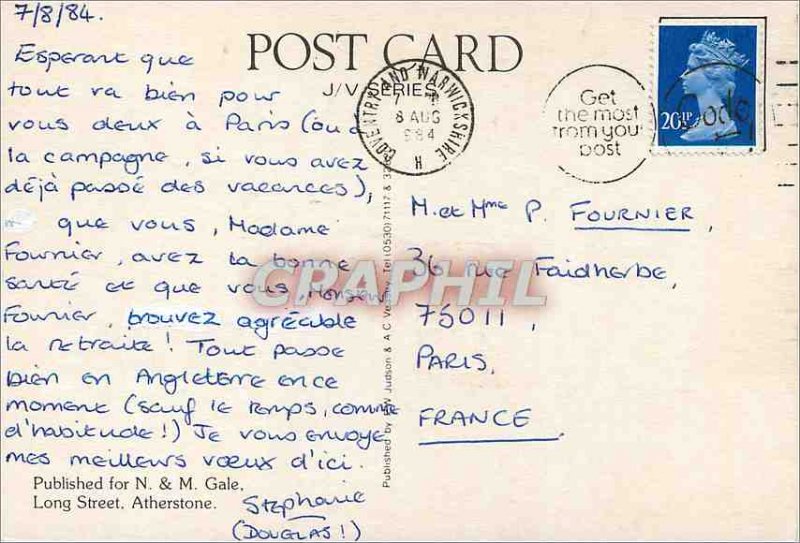 7/8/84.
POST CARD
J/V SERIES
Esperant que
tout va bien pour
vous deux à Paris (ou à
la campagne, si vous avez
déjà passé des vacances),
que vous, Madame
Fournier, avez la bonne
santé et que vous, Monsieur
Fournier, trouvez agréable
la retraite! Tout passe
bien en Angleterre en ce
moment (sauf le temps, comme
d'habitude!) Je vous envoye
mes meilleurs vœux d'ici.
Stephanie
(DOUGLAS!)
Published for N. & M. Gale,
Long Street, Atherstone.
COVENTRY AND WARWICKSHIRE
8 AUG
1984
H
Get
the most
from your
post
Code
20½P
M. et Mme P. FOURNIER,
36 rue Faidherbe,
75011,
PARIS,
FRANCE.
Published by Judson & A C Tel (0530) 71117 & 32
CPAPHIL